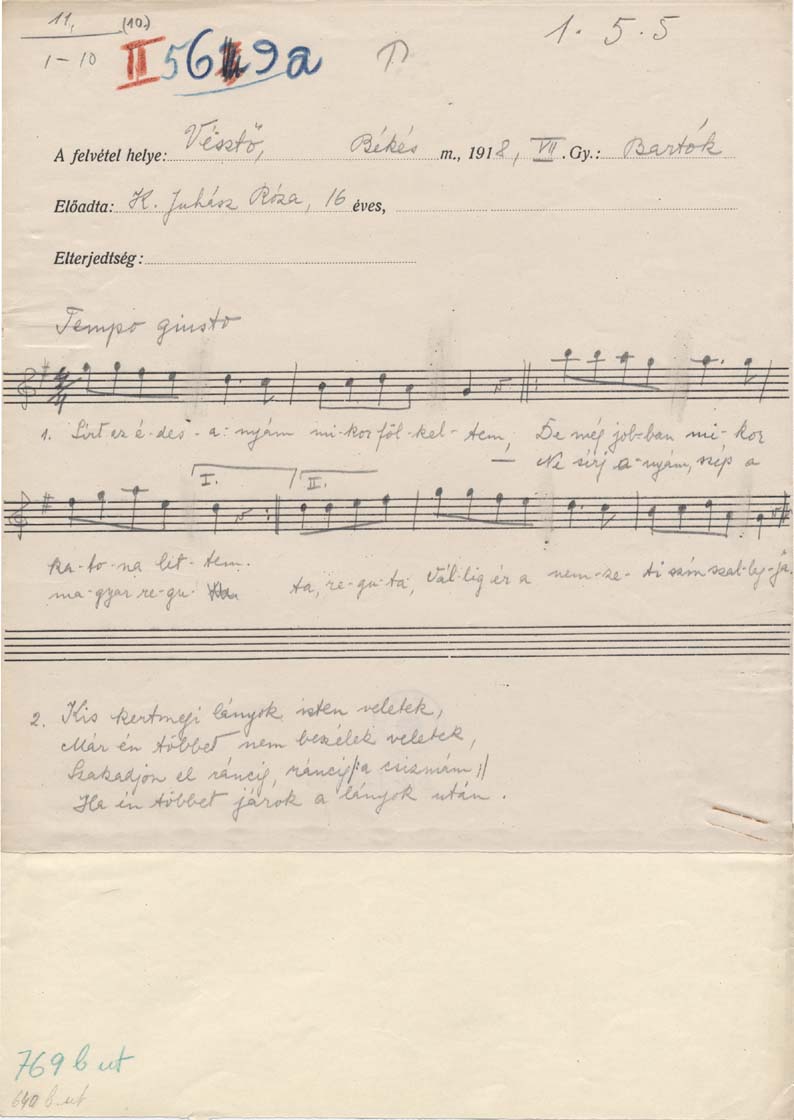 11. (10.) 1. 5. 5
1-10 II 56 9a
A felvétel helye: Vésztő, Békés m., 1918, VII. Gy.: Bartók
Előadta: K. Juhász Róza, 16 éves,
Elterjedtség:
Tempo giusto
1. Sirt az é-des-a-nyám mi-kor föl-kel-tem, De még job-ban mi-kor
Ne sirj a-nyám, szép a
I. II.
ka-to-na let-tem.
ma-gyar re-gu ta, re-gu-ta, Vál-lig ér a nem-ze-ti szin szal-lag-ja.
2. Kis kertmegi lányok isten veletek,
Már én többet nem beszélek veletek,
Szakadjon el ráncig, ráncig /: a csizmám :/
Ha én többet járok a lányok után.
769 b ut
640 b ut